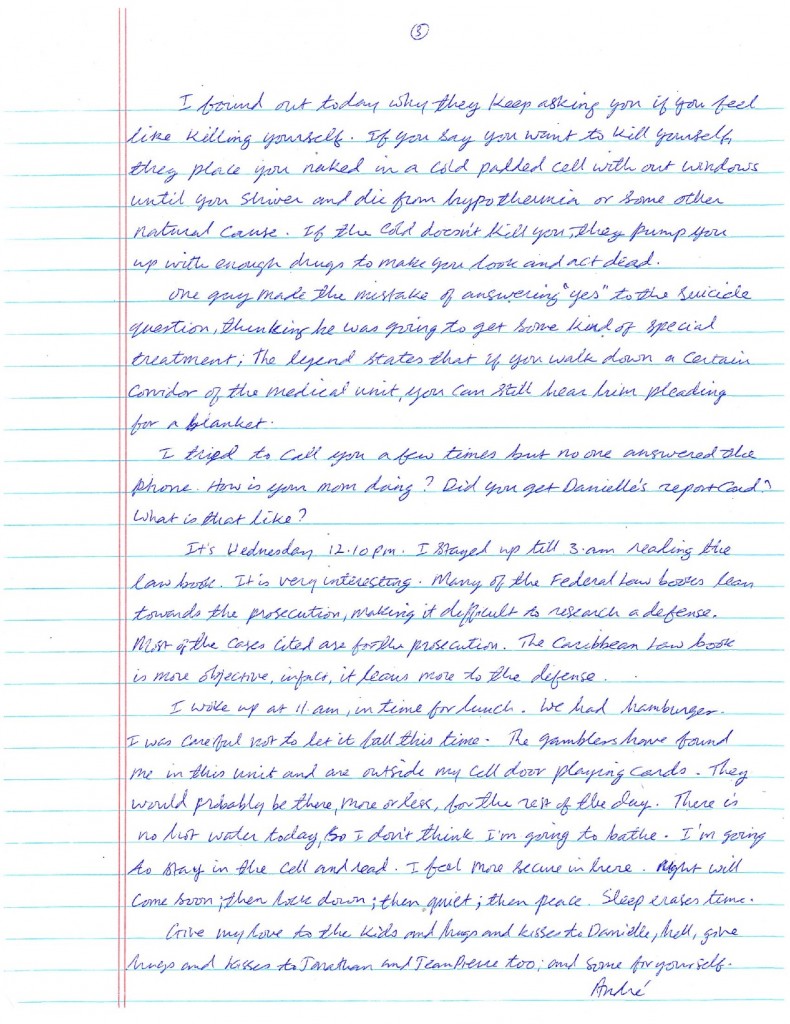 3
I found out today why they keep asking you if you feel
like killing yourself. If you say you want to kill yourself,
they place you naked in a cold padded cell with out windows
until you shiver and die from hypothermia or some other
natural cause. If the cold doesn't kill you, they pump you
up with enough drugs to make you look and act dead.
One guy made the mistake of answering "yes" to the suicide
question, thinking he was going to get some kind of special
treatment; The legend states that if you walk down a certain
corridor of the medical unit, you can still hear him pleading
for a blanket.
I tried to call you a few times but no one answered the
phone. How is your mom doing? Did you get Danielle's report Card?
What is that like?
It's Wednesday 12.10 pm. I stayed up till 3.am reading the
law book. It is very interesting. Many of the Federal Law books lean
towards the prosecution, making it difficult to research a defense.
Most of the cases cited are for the prosecution. The Caribbean Law book
is more objective, infact, it leans more to the defense.
I woke up at 11.am, in time for lunch. We had hamburger.
I was careful not to let it fall this time. The gamblers have found
me in this unit and are outside my cell door playing cards. They
would probably be there, more or less, for the rest of the day. There is
no hot water today, so I don't think I'm going to bathe. I'm going
to stay in the cell and read. I feel more secure in here. Night will
come soon; then lock down; then quiet; then peace. Sleep erases time.
Give my love to the kids and hugs and kisses to Danielle, hell, give
hugs and kisses to Jonathan and JeanPierre too; and some for yourself.
André